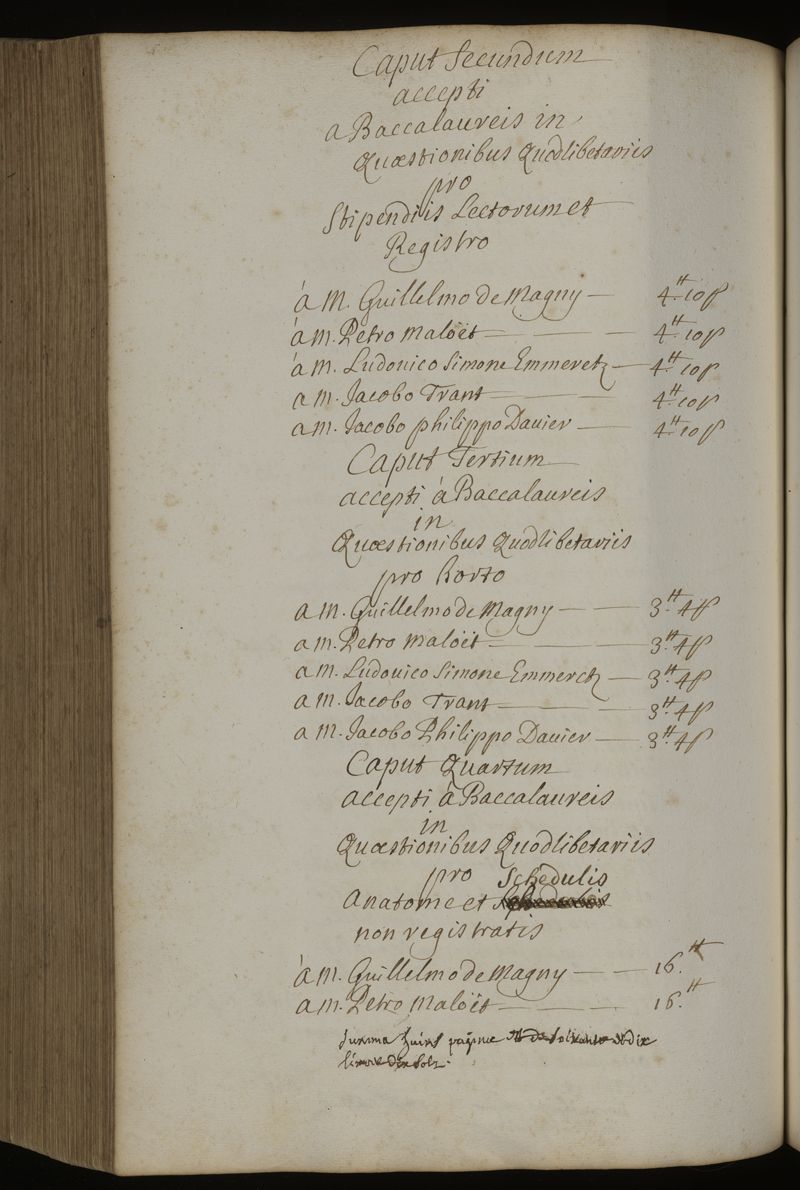 Caput Secundum
accepti
a Baccalaureis in
Quæstionibus Quodlibetariis
pro
Stipendiis Lectorum et
Registro
à M. Guillelmo de Magny — 4.tt 10 ß
à m. Petro Maloët — 4.tt 10 ß
à m. Ludouico Simone Emmeretz — 4.tt 10 ß
a m. Jacobo Trant — 4.tt 10 ß
a m. Jacobo philippo Dauier — 4.tt 10 ß
Caput Tertium
accepti à Baccalaureis
in
Quæstionibus Quodlibetariis
pro horto
a m. Guillelmo de Magny — 3.tt 4 ß
a m. Petro Maloët — 3.tt 4 ß
a m. Ludouico Simone Emmeretz — 3.tt 4 ß
a m. Jacobo Trant — 3.tt 4 ß
a M. Jacobo Philippo Dauier — 3.tt 4 ß
Caput Quartum
accepti à Baccalaureis
in
Quæstionibus Quodlibetariis
pro Schedulis
Anatome et
non registratis
à m. Guillelmo de Magny — 16.tt
a m. Petro Maloët — 16.tt
Summa huius paginæ est de soixante et dix
liures dix solz.